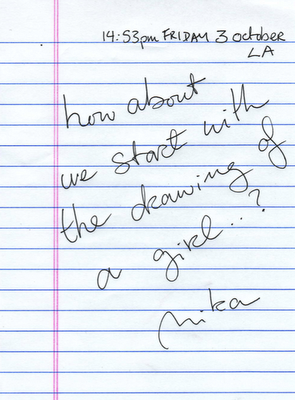 14:53pm FRIDAY 3 october
LA
how about
we start with
the drawing of
a girl...?
mika